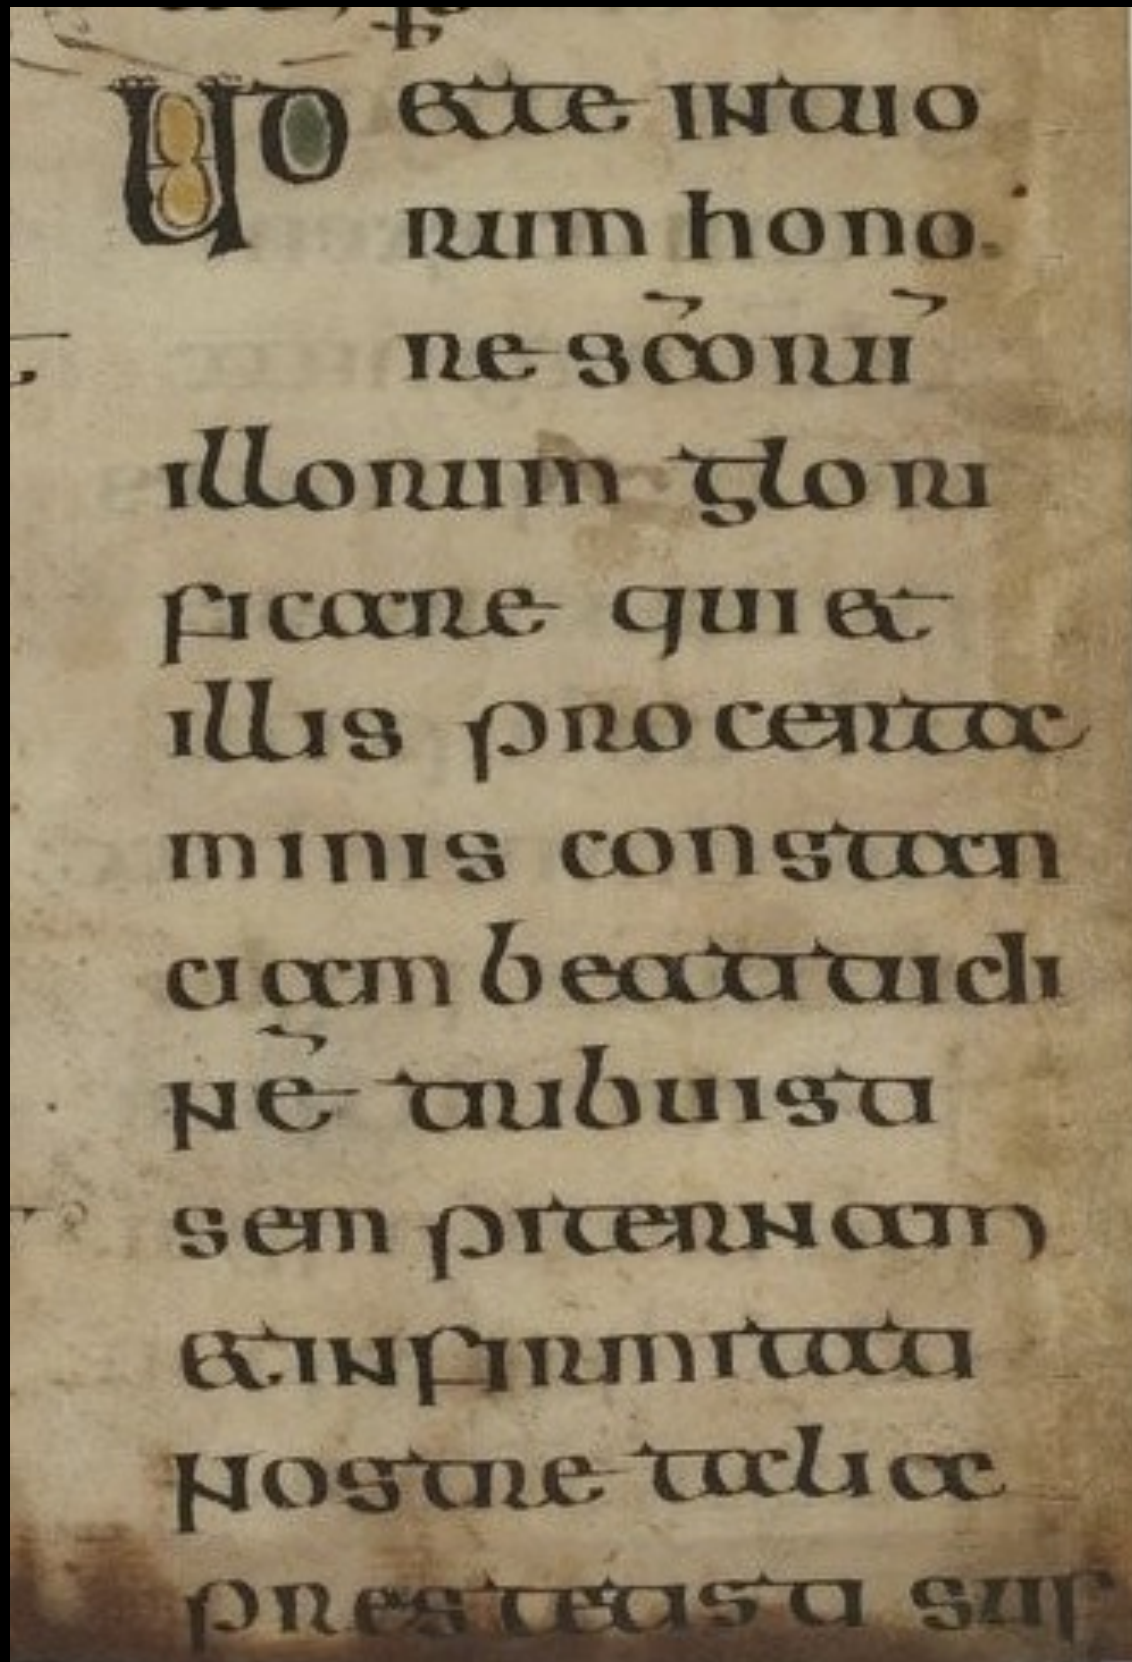 UD &te in tuo
rum hono
re sc̄orū
illorum glori
ficare qui &
illis pro certa
minis constan
ciam beatitudi
nē tribuisti
sempiternam
& infirmitati
nostre talia
prestetisti suf